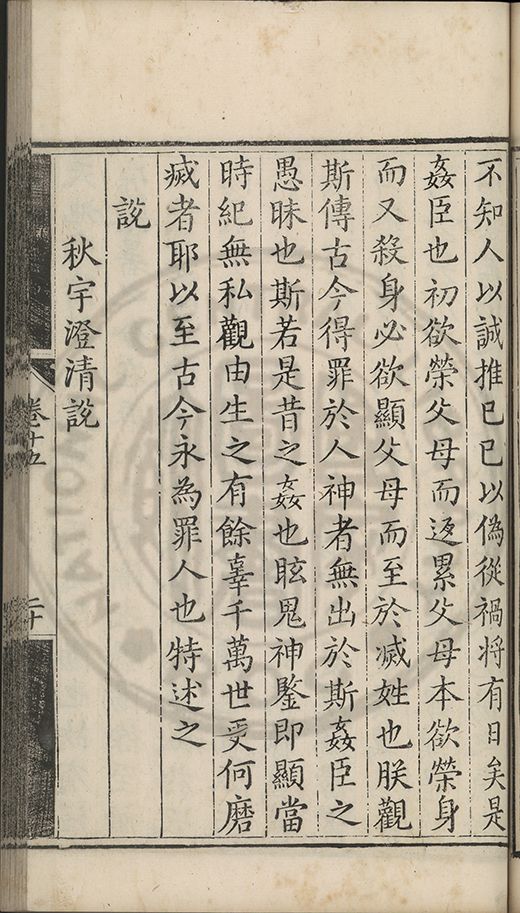 不知人以誠推已已以偽從禍将有日矣是
姦臣也初欲榮父母而返累父母本欲榮身
而又殺身必欲顯父母而至於滅姓也朕觀
斯傳古今得罪於人神者無出於斯姦臣之
愚昧也斯若是昔之姦也眩鬼神鑒即顯當
時紀無私觀由生之有餘辜千萬世受何磨
滅者耶以至古今永為罪人也特述之
說
秋宇澄清說
卷十五
二十